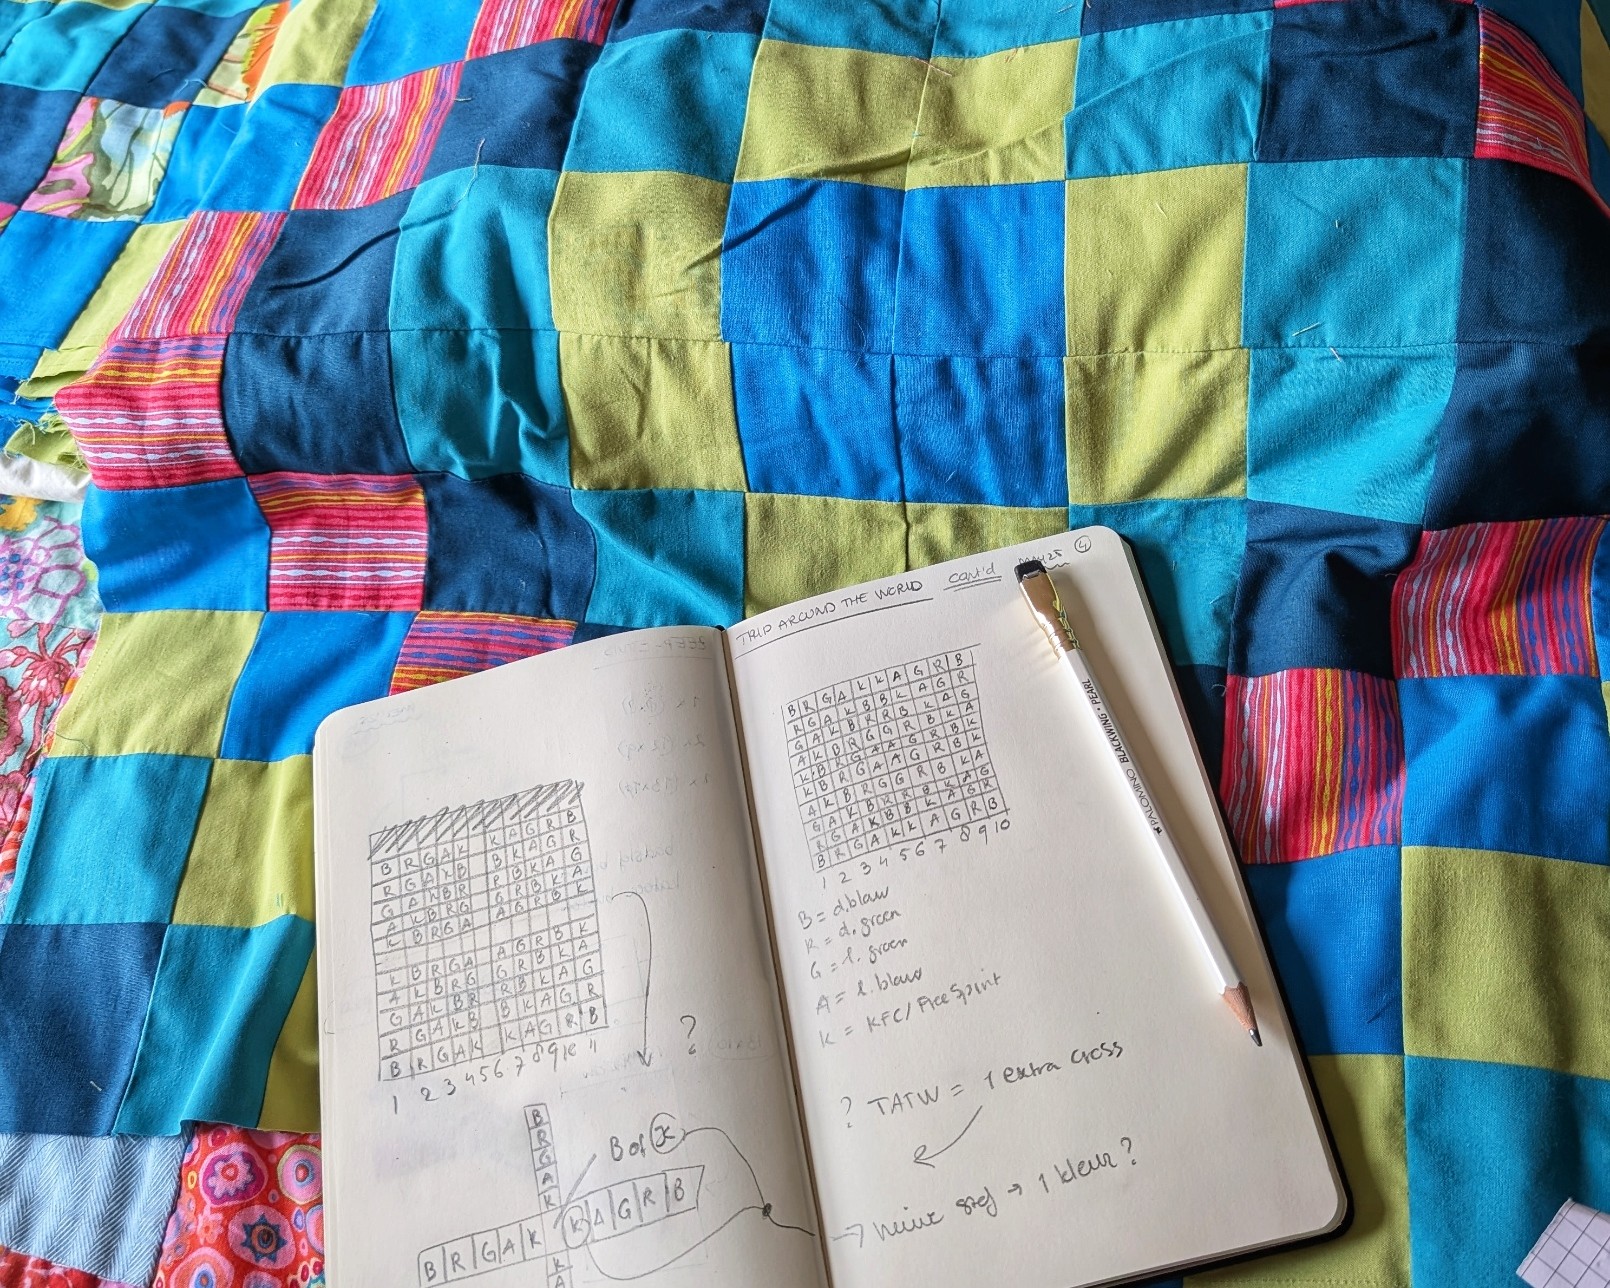 B R G A K K A G R B
R G A K B B K A G R
G A K B R R B K A G
A K B R G G R B K A
K B R G A A G R B K
K B R G A A G R B K
A K B R G G R B K A
G A K B R R B K A G
R G A K B B K A G R
B R G A K K A G R B
1 2 3 4 5 6 7 8 9 10 11
?
B
R
G
A
K
B of K
B R G A K K A G R B
K
A
TRIP AROUND THE WORLD cont'd MAY 25 4
B R G A K K A G R B
R G A K B B K A G R
G A K B R R B K A G
A K B R G G R B K A
K B R G A A G R B K
K B R G A A G R B K
A K B R G G R B K A
G A K B R R B K A G
R G A K B B K A G R
B R G A K K A G R B
1 2 3 4 5 6 7 8 9 10
B = d.blauw
R = d.green
G = l.green
A = l.blauw
K = KFC/
? TATW = 1 extra cross
→ 1 kleur?
PALOMINO BLACKWING • PEARL